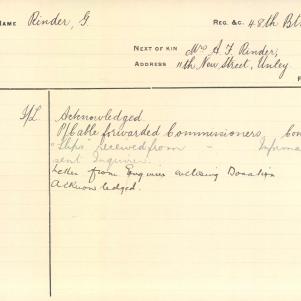 NAME Rinder, G. REG. &C. 48th Bt
NEXT OF KIN Mrs A. F. Rinder,
ADDRESS 11th New Street, Unley
F
I/L Acknowledged
P/Cable forwarded Commissioners, Con
"Slips" received from - Informa
sent Inquirer.
Letter from Enquirer enclosing Donation
Acknowledged.